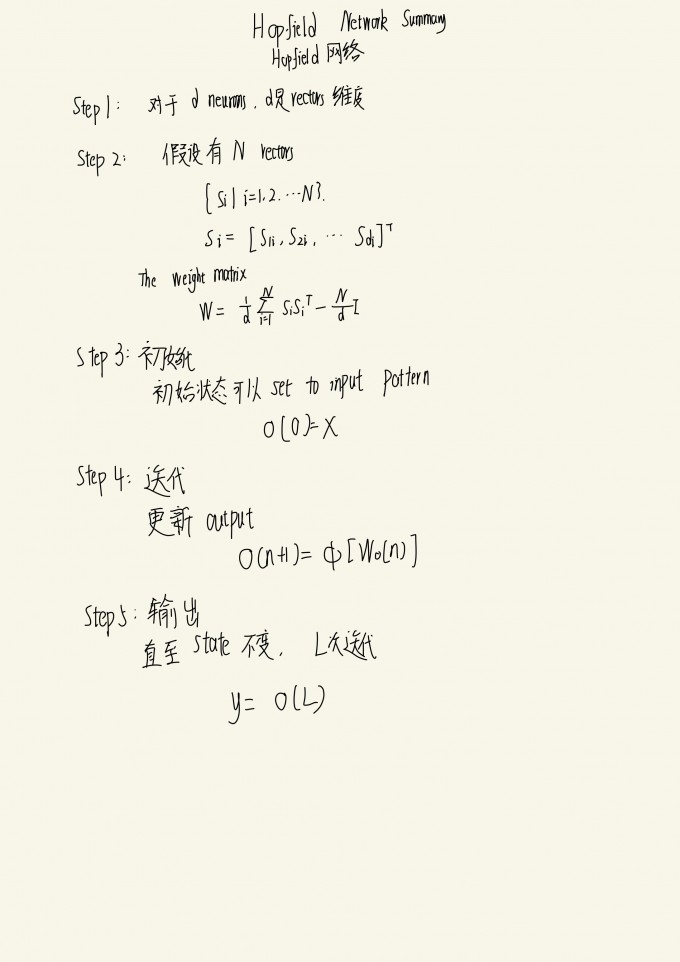 Hopfield Network Summary
Hopfield 网络
Step 1: 对于 d neurons, d是 vectors 维度
Step 2: 假设有 N vectors
{Si | i=1,2,...N}.
Si = [S1i, S2i, ... Sdi]^T
The weight matrix
W = 1/d ∑_{i=1}^{N} SiSi^T - N/d I
Step 3: 初始化
初始状态可以 set to input pattern
O(0)=X
Step 4: 迭代
更新 output
O(n+1) = Φ[Wo(n)]
Step 5: 输出
直至 state 不变, L次迭代
y = O(L)